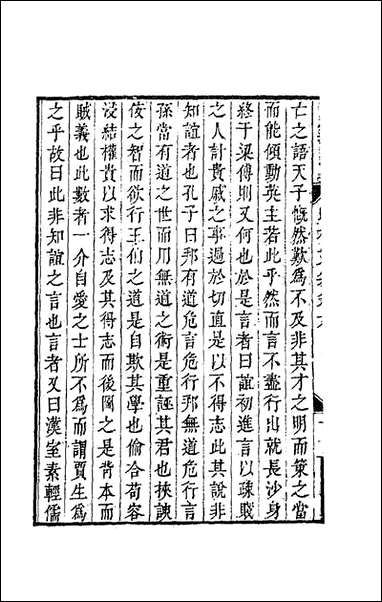 亡之語天子慨然歎爲不及非其才之明而策之當
而能傾動英主若此乎然而言不盡行出就長沙身
終于梁傅則又何也於是言者曰誼初進言以疎賤
之人計貴戚之事過於切直是以不得志此其說非
知誼者也孔子曰邦有道危言危行邦無道危行言
孫當有道之世而用無道之術是重誣其君也挾諛
佞之智而欲行王伯之道是自欺其學也偷合苟容
浸結權貴以求得志及其得志而後圖之是背本而
賊義也此數者一介自愛之士所不爲而謂賈生爲
之乎故曰此非知誼之言也言者又曰漢室素輕儒